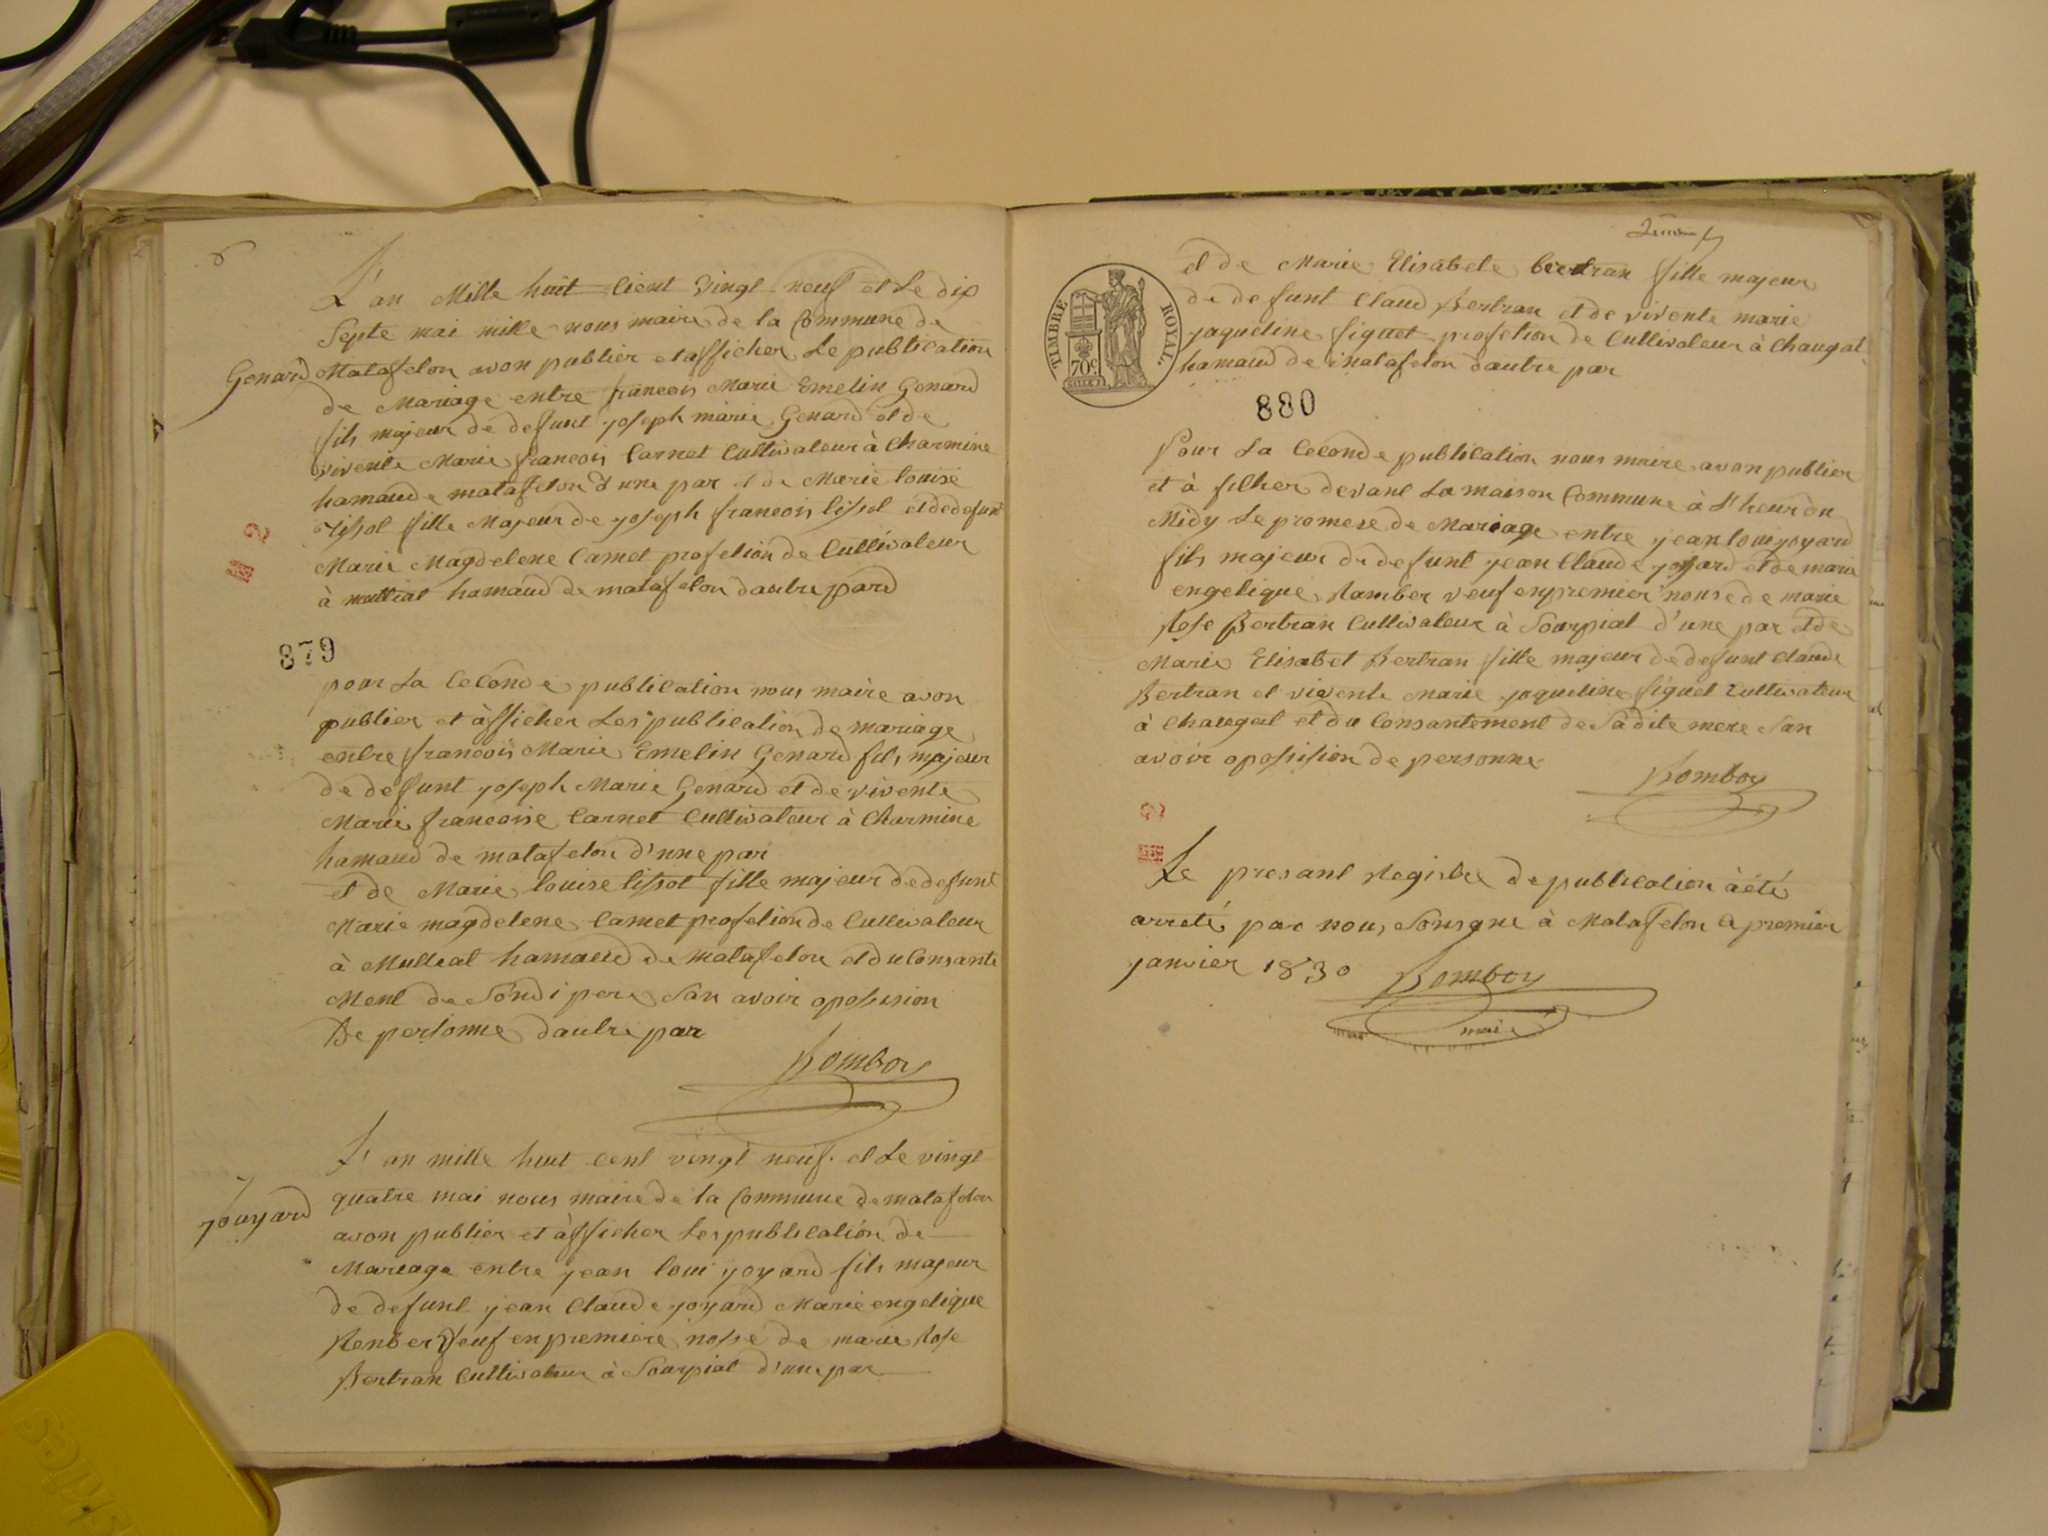 6
L'an Mille huit Cient Vingt neuf et Le dix
Septe mai mille nous maire de la Commune de
Genard
Matafelon avon publier et afficher Le publication
de Mariage entre francois Marie Emelin Genard
fils majeur de defunt joseph marie Genard et de
vivente Marie francois Carnet Cultivateur à Charmine
hamaud de matafelon d'une par et de Marie louise
tissot fille Majeur de joseph francois tissot et de defunt
Marie Magdelene Camet profetion de Cultivateur
à hamaud de matafelon dautre pard
879
pour La Ceconde publication nous maire avon
publier et àfficher Les publication de mariage
entre francois Marie Emelin Genard fils majeur
de defunt joseph Marie Genard et de vivente
Marie francoise Carnet Cultivateur à Charmine
hamaud de matafelon d'une par
et de Marie louise tissot fille majeur de defunt
Marie magdelene Camet profetion de Cultivateur
à Mulliat hamaud de matafelon et du Consante
Ment de Sondi pere San avoir oposision
De personne dautre par
Bomboy
L'an mille huit cent vingt neuf et Le vingt
quatre mai nous maire de la Commune de matafelon
jouyard
avon publier et àfficher Les publication de
Mariage entre jean loui joyard fils majeur
de defunt jean Claude joyard Marie engelique
Renber Veuf en premiere nosse de marie Rose
Bertran Cultivateur à Sourpiat d'une par
TIMBRE ROYAL
70c.
et de Marie Elisabete bertran fille majeur
de defunt Claud Bertran et de vivente marie
jaqueline figuet profetion de Cultivateur à Chaugat
hamaud de matafelon dautre par
880
Pour La Ceconde publication nous maire avon publier
et à ficher devant La maison Commune à L'heur du
Midy Le promese de Mariage entre jean loui joyard
fils majeur de defunt jean Claude joyard et de marie
engelique Ramber veuf en premier nouse de marie
Rose Bertran Cultivateur à Sourpiat d'une par et de
Marie Elisabet Bertran fille majeur de defunt Claude
Bertran et vivente Marie jaqueline figuet Cultivateur
à Chaugat et du Consantement de Sa dite mere San
avoir oposision de personne
Bomboy
Le presant Registre de publication à été
arreté par nous Sousigne à Matafelon le premier
janvier 1830 Bomboy
maire